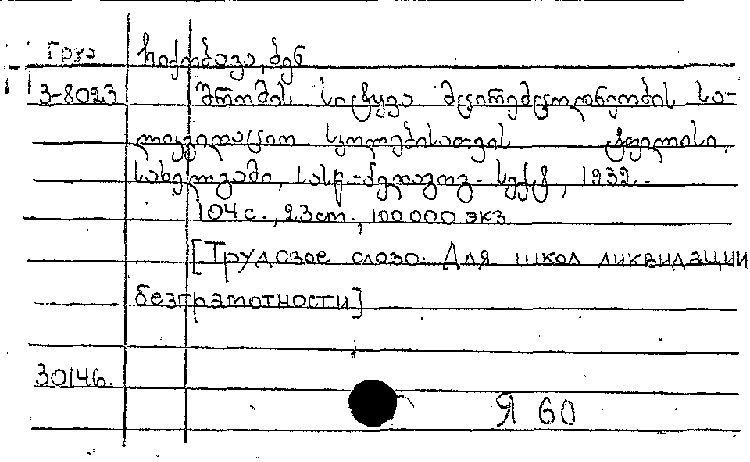 Груз ჩიქობავა, ბენ
3-8023 შრომის სიტყვა მცირემცოდნეობის სა-
ლიკვიდაციო სკოლებისათვის
სახელგამი, სასწ.-პედაგოგ. სექტ., 1932.-
104 с., 23 cm., 100000 экз
[Трудовое слово. Для школ ликвидации
безграмотности]
30146.
Я 60